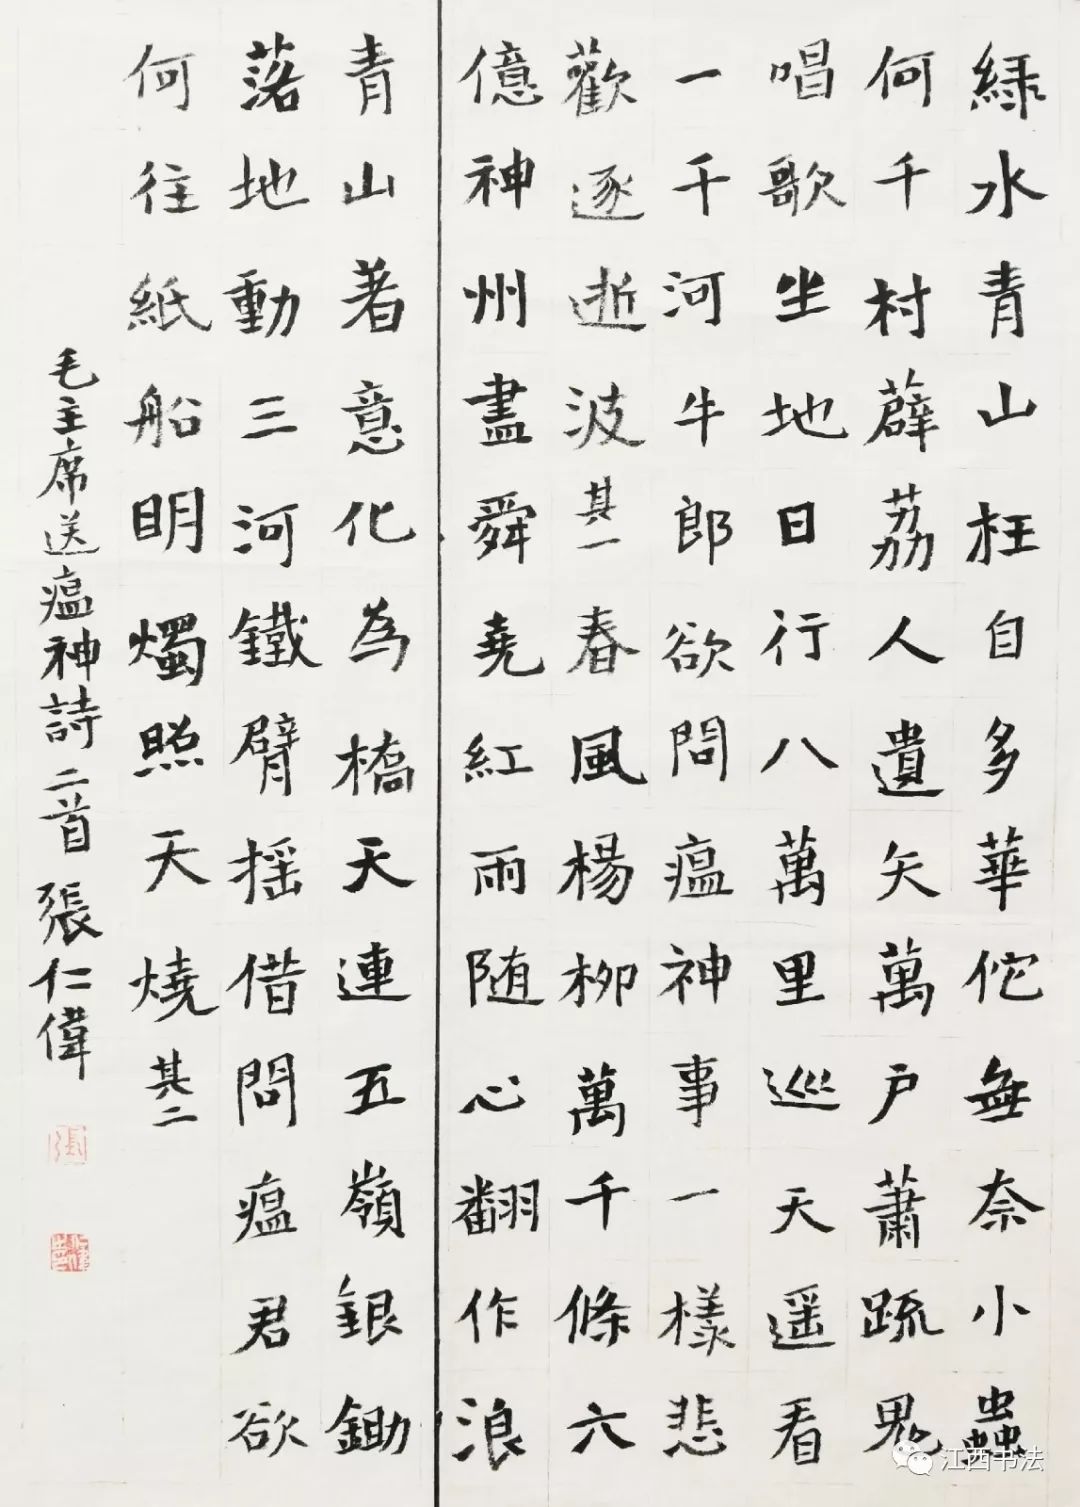 綠水青山枉自多華佗無奈小蟲
何千村薜荔人遺矢萬戶蕭疏鬼
唱歌坐地日行八萬里巡天遥看
一千河牛郎欲問瘟神事一樣悲
歡逐逝波其一春風楊柳萬千條六
億神州盡舜堯紅雨随心翻作浪
青山著意化為橋天連五嶺銀鋤
落地動三河鐵臂摇借問瘟君欲
何往紙船明燭照天燒其二
毛主席送瘟神詩二首張仁偉
江西书法